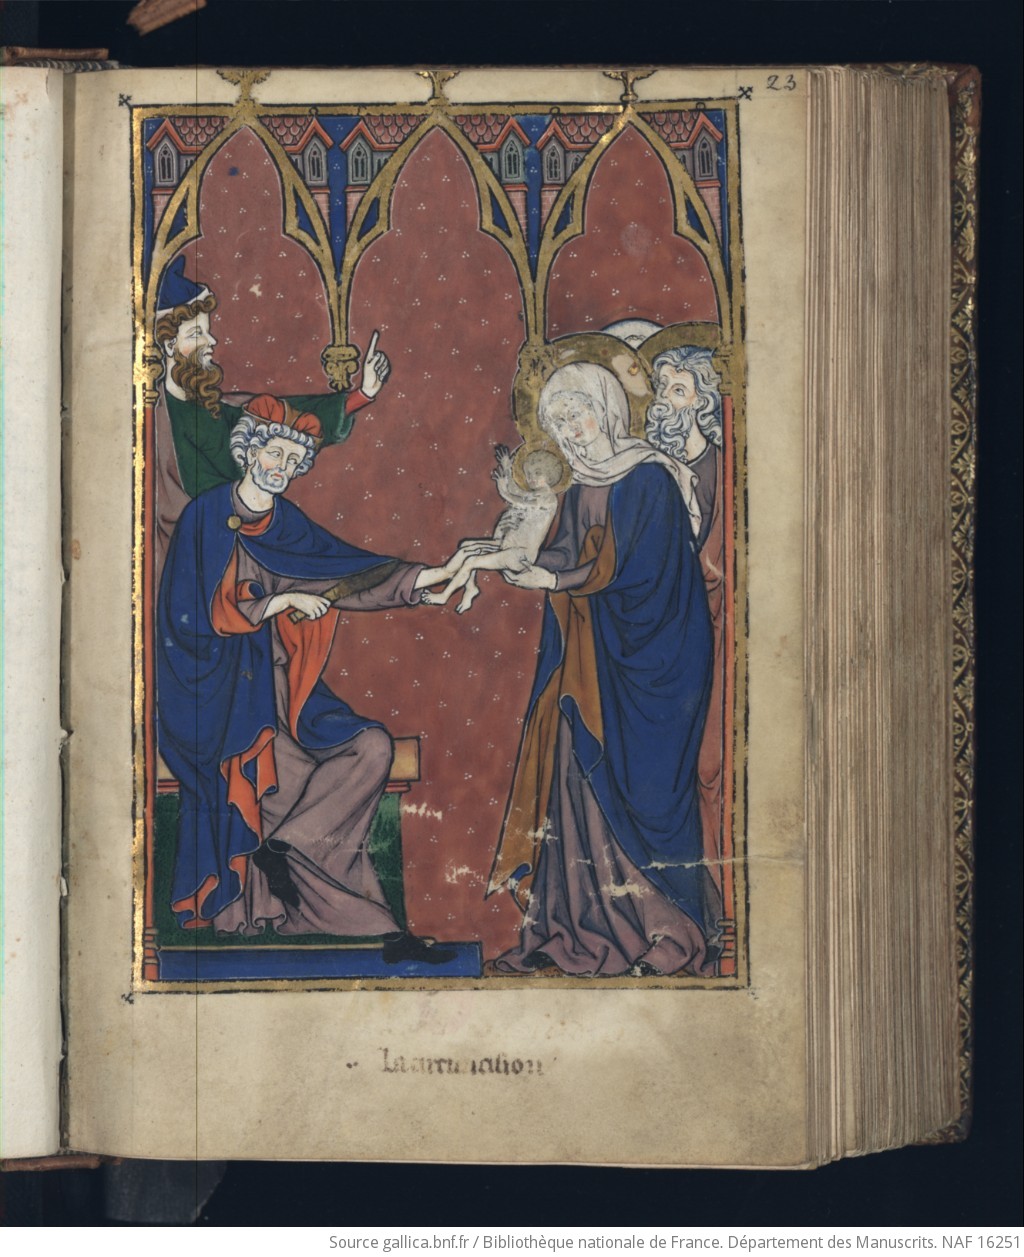 23
La circuncision
Source gallica.bnf.fr / Bibliothèque nationale de France. Département des Manuscrits. NAF 16251